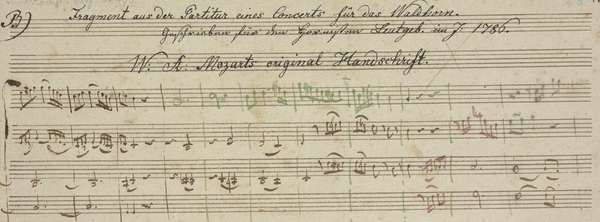 B)
Fragment aus der Partitur eines Concerts für das Waldhorn.
Geschrieben für den Hornisten Leutgeb. im J. 1786.
W. A. Mozarts original Handschrift.